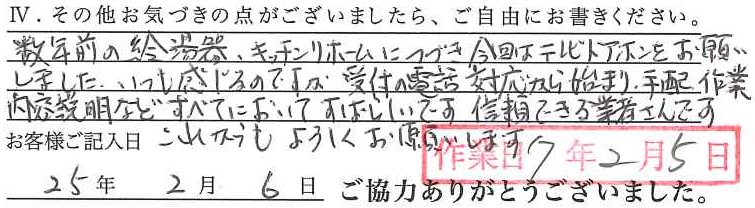 Ⅳ．その他お気づきの点がございましたら、ご自由にお書きください。
数年前の給湯器、キッチンリホームにつづき今回はテレビドアホンをお願い
しました。いつも感じるのですが受付の電話対応から始まり、手配、作業
内容説明などすべてにおいてすばらしいです 信頼できる業者さんです
お客様ご記入日 これからもよろしくお願いします
作業日 7年2月5日
25年 2月 6日 ご協力ありがとうございました。